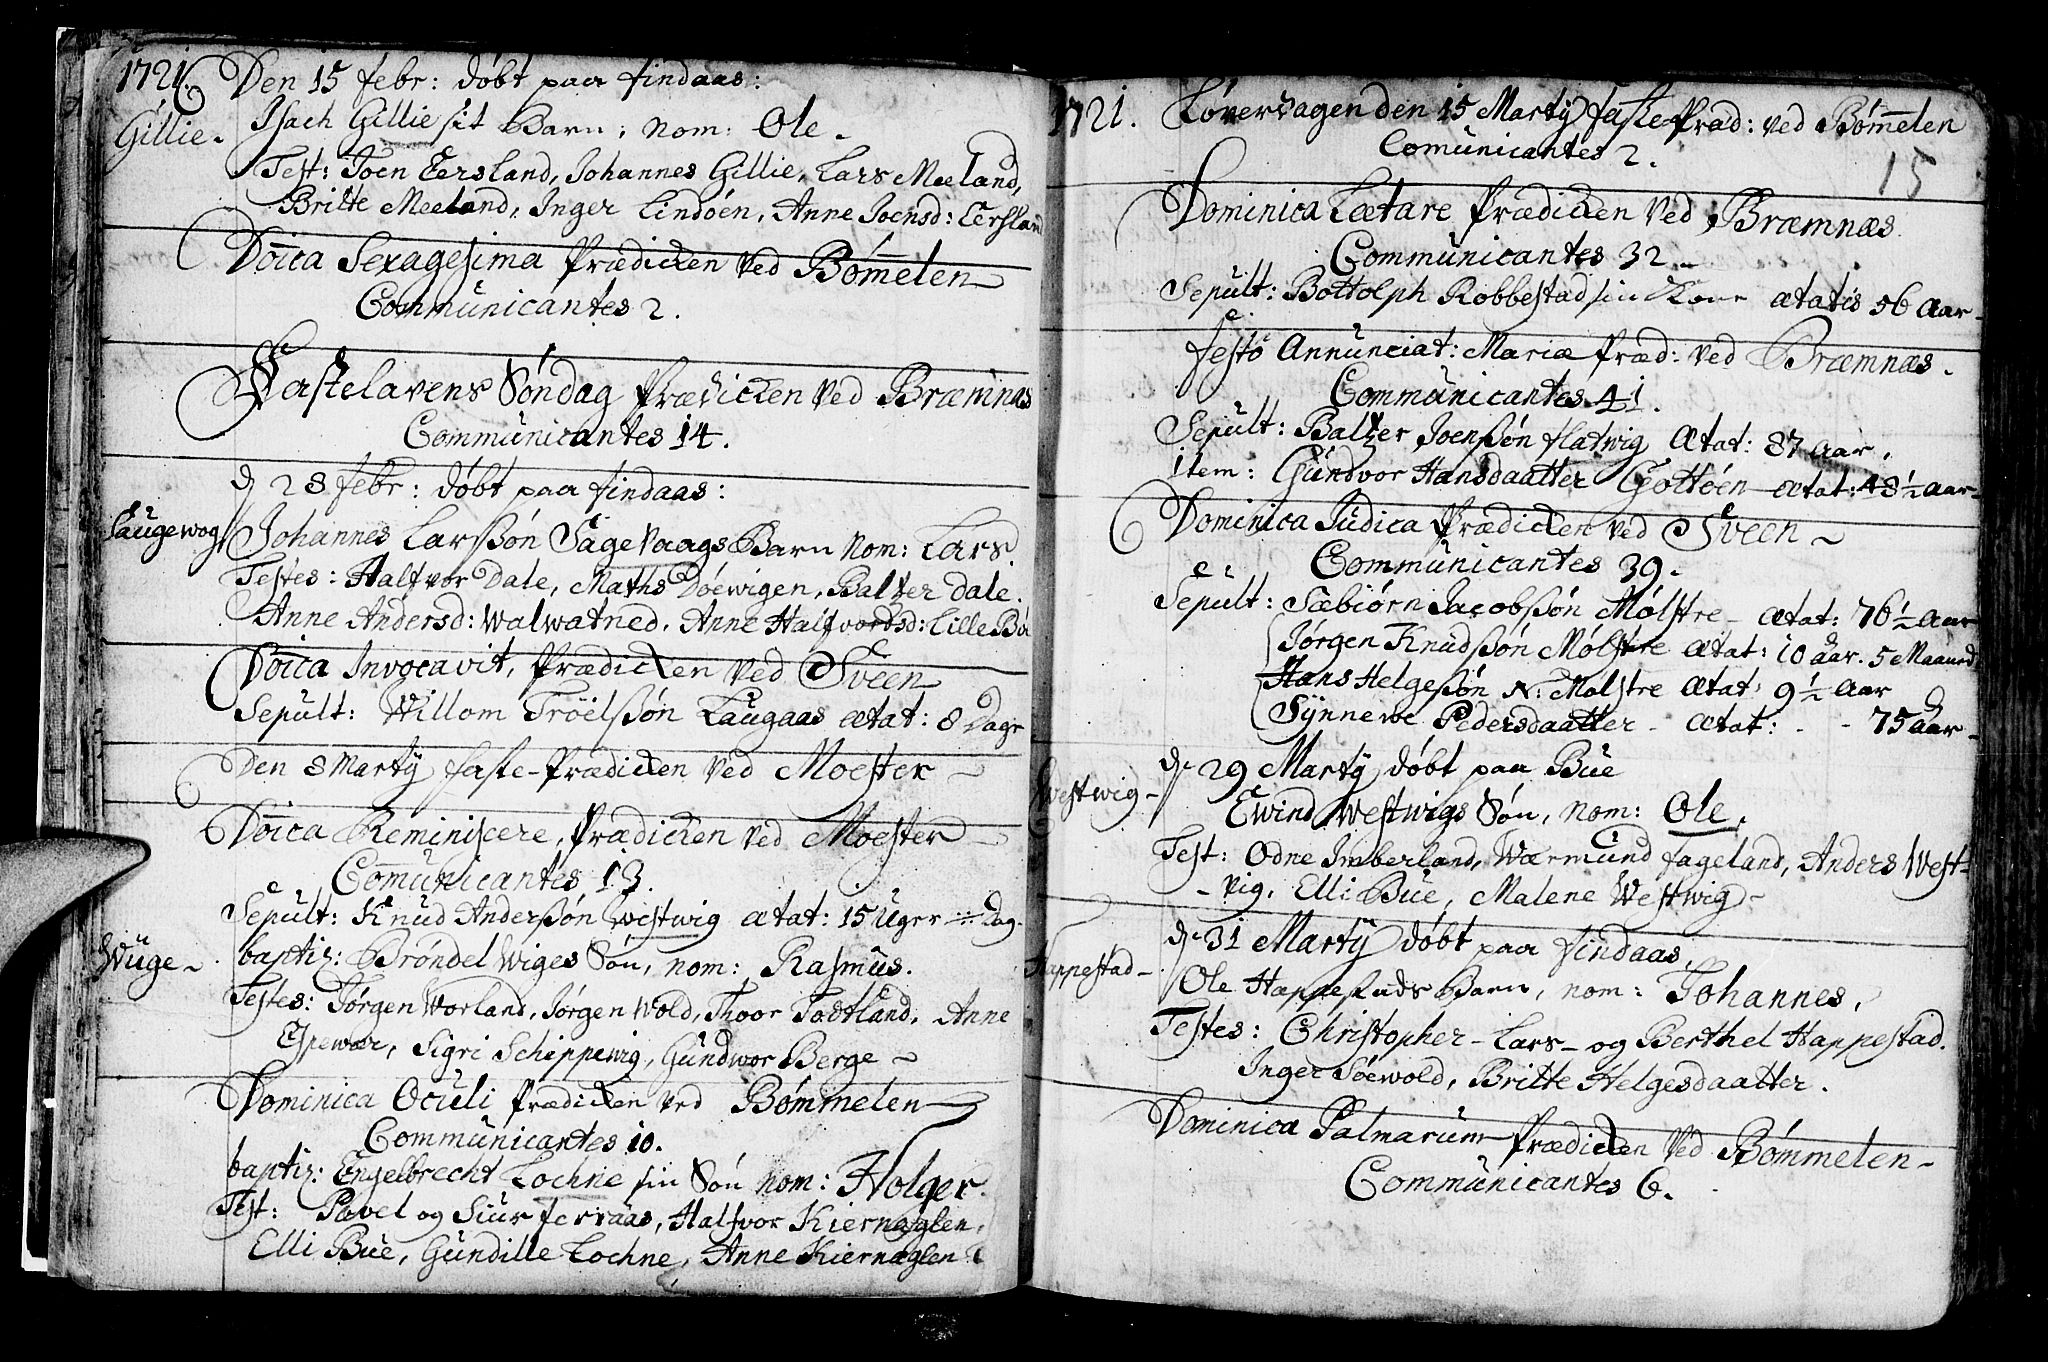 1721. Den 15 febr: døbt paa findaas:
Gillie. Isach Gillie sit Barn; nom: Ole.
Test: Joen Eersland, Johannes Gillie, Lars Meeland,
Britte Meeland, Inger Lindöen, Anne Joensd: Eersland
Doïca Sexagesima Prædicken ved Bømelen
Communicantes 2.
Fastelavens Söndag Prædicken ved Bræmnæs
Communicantes 14.
d 28 febr: døbt paa findaas:
Saugewog Johannes Larssön Sagevaags Barn nom: Lars.
Testes: Halfvor Dale, Maths Döewigen, Baltzer Dale.
Anne Andersd: Walwatned, Anne Halfvordsd: Lille Bø
Doïca Invocavit, Prædicken ved Sveen
Sepult: Willom Tröelssön Laugaas ætat: 8 Dage
Den 8 Martÿ faste-Prædicken ved Moester
Doïca Reminiscere, Prædicken ved Moester
Comunicantes 13.
Sepult: Knud Anderssön Westwig ætat: 15 Uger Dag.
Wüge baptiz: Bröndel Wiges Søn, nom: Rasmus.
Testes: Jørgen Worland, Jørgen Wold, Thoor Todtland, Anne
Espewær, Sigri Schippewig, Gündwor Berge
Dominica Oculi Prædicken ved Bømmelen
Communicantes 10.
baptiz: Engelbrecht Lochne sin Søn nom: Holger.
Test: Povel og Siur ferraas, Halfvor Kiernaglen,
Elli Bue, Gundille Lochne, Anne Kiernaglen
1721. Løverdagen den 15 Martÿ faste-Præd: ved Bømelen
Comunicantes 2.
15
Dominica Lætare Prædicken ved Bræmnæs.
Communicantes 32
Sepult: Bottolph Robbestad sin Kone ætatis 56 Aar
Festo Annunciat: Mariæ Præd: ved Bræmnæs.
Communicantes 41.
Sepult: Baltzer Joenssön flatwig Ætat: 87 aar,
item: Gundvor Hansdaatter Gottöen ætat: 48½ aar
Dominica Judica Prædicken ved Sveen
Communicantes 39.
Sepult: Sæbiørn Jacobssön Mølstre ætat: 76½ aar
Jørgen Knudssön Mølstre ætat: 10 aar. 5 Maaned
Hans Helgesön N: Mølstre ætat: 9½ aar
Synnewe Pedersdaatter ætat: 75 aar
Westwig d. 29 Martÿ døbt paa Bue
Ewind Westwigs Søn, nom: Ole.
Test: Odne Imberland, Wærmund fageland, Anders West-
-vig, Elli Bue, Malene Westwig
d. 31 Martÿ døbt paa findaas,
Happestad Ole Happestads Barn, nom: Johannes,
Testes: Christopher Lars og Berthel Happestad.
Inger Söewold, Britte Helgesdaatter.
Dominica Palmarum Prædicken ved Bømmelen
Communicantes 6.